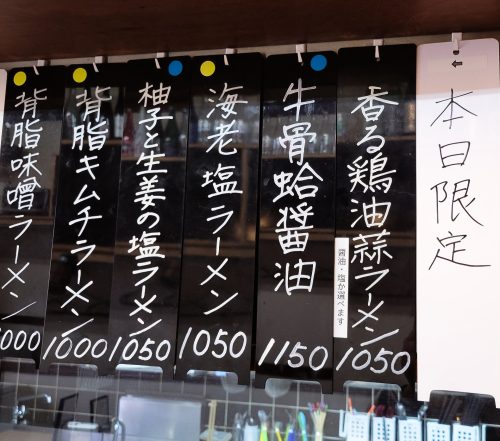 本日限定
香る鶏油蒜ラーメン
醤油・塩が選べます
1050
牛骨蛤醤油
1150
海老塩ラーメン
1050
柚子と生姜の塩ラーメン
1050
背脂キムチラーメン
1000
背脂味噌ラーメン
1000